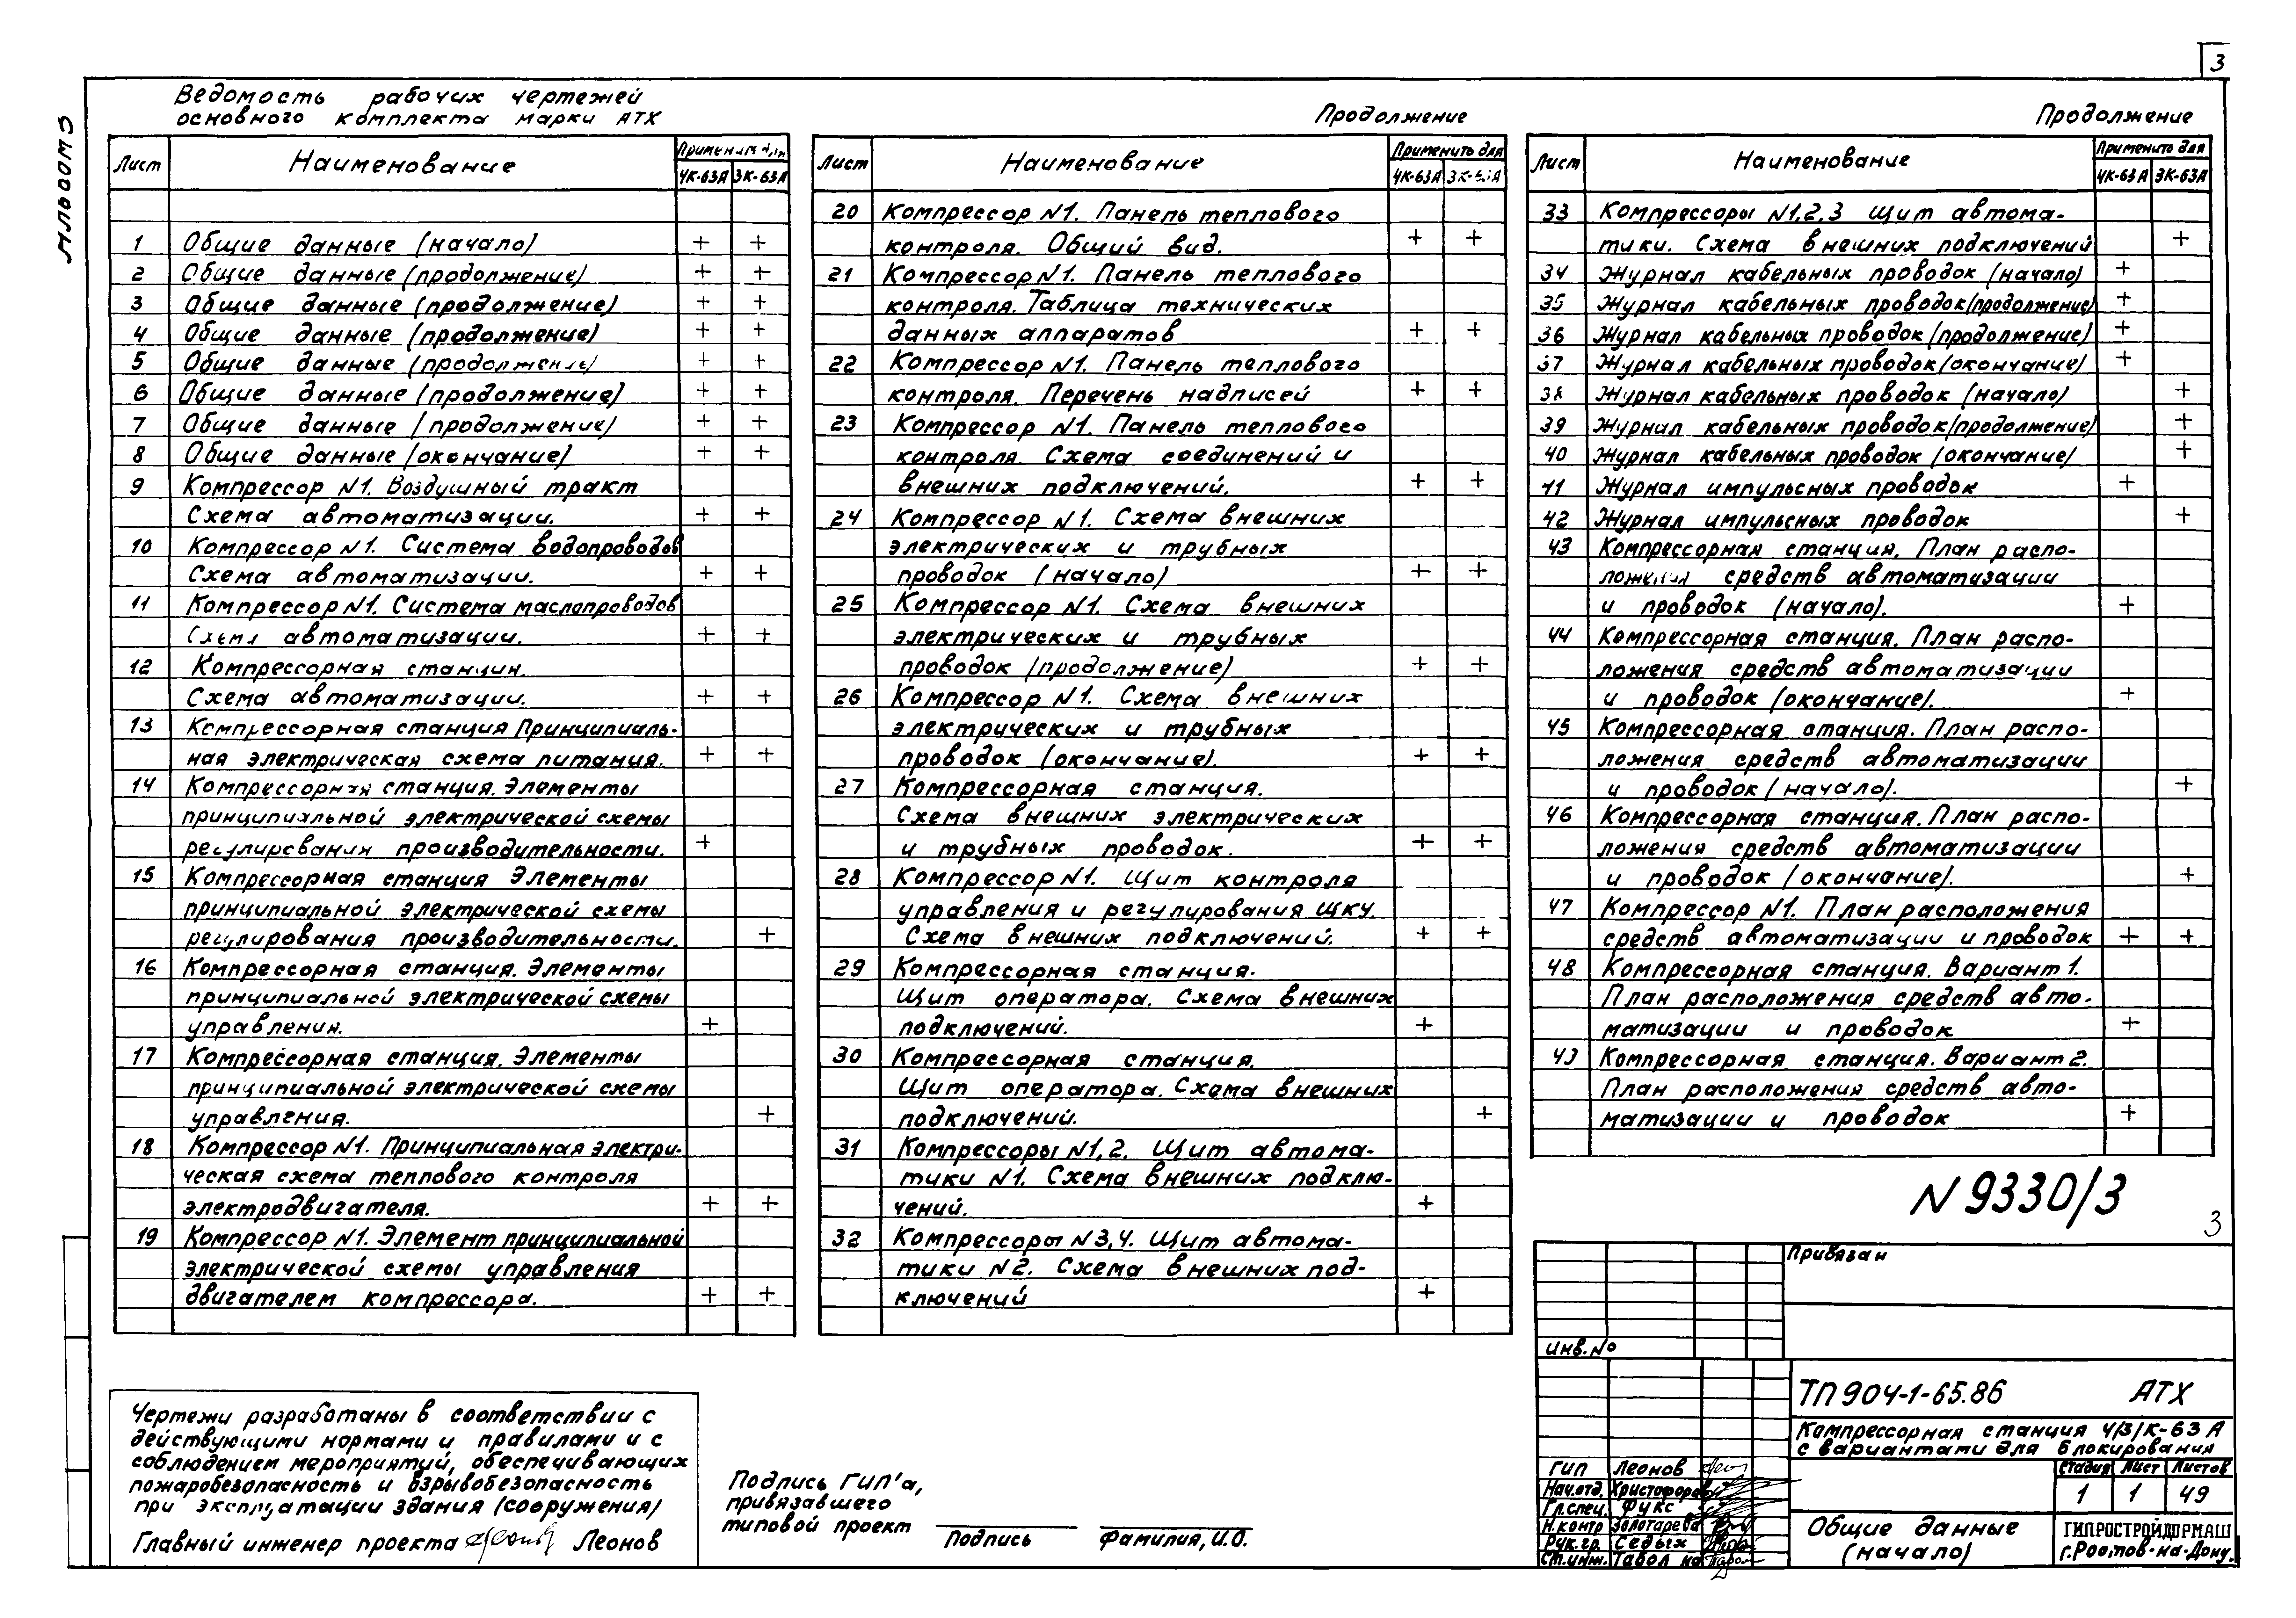 3
Альбом 3
Ведомость рабочих чертежей
основного комплекта марки АТХ
Лист Наименование Применить для
4К-63А 3К-63А
1 Общие данные (начало) + +
2 Общие данные (продолжение) + +
3 Общие данные (продолжение) + +
4 Общие данные (продолжение) + +
5 Общие данные (продолжение) + +
6 Общие данные (продолжение) + +
7 Общие данные (продолжение) + +
8 Общие данные (окончание) + +
9 Компрессор N1. Воздушный тракт
Схема автоматизации. + +
10 Компрессор N1. Система водопроводов
Схема автоматизации. + +
11 Компрессор N1. Система маслопроводов
Схема автоматизации. + +
12 Компрессорная станция.
Схема автоматизации. + +
13 Компрессорная станция Принципиаль-
ная электрическая схема питания. + +
14 Компрессорная станция. Элементы
принципиальной электрической схемы
регулирования производительности. +
15 Компрессорная станция Элементы
принципиальной электрической схемы
регулирования производительности. +
16 Компрессорная станция. Элементы
принципиальной электрической схемы
управления. +
17 Компрессорная станция. Элементы
принципиальной электрической схемы
управления. +
18 Компрессор N1. Принципиальная электри-
ческая схема теплового контроля
электродвигателя. + +
19 Компрессор N1. Элемент принципиальной
электрической схемы управления
двигателем компрессора. + +
Продолжение
Лист Наименование Применить для
4К-63А 3К-63А
20 Компрессор N1. Панель теплового
контроля. Общий вид. + +
21 Компрессор N1. Панель теплового
контроля. Таблица технических
данных аппаратов + +
22 Компрессор N1. Панель теплового
контроля. Перечень надписей + +
23 Компрессор N1. Панель теплового
контроля. Схема соединений и
внешних подключений. + +
24 Компрессор N1. Схема внешних
электрических и трубных
проводок (начало) + +
25 Компрессор N1. Схема внешних
электрических и трубных
проводок (продолжение) + +
26 Компрессор N1. Схема внешних
электрических и трубных
проводок (окончание). + +
27 Компрессорная станция.
Схема внешних электрических
и трубных проводок. + +
28 Компрессор N1. Щит контроля
управления и регулирования ЩКУ.
Схема внешних подключений. + +
29 Компрессорная станция.
Щит оператора. Схема внешних
подключений. +
30 Компрессорная станция.
Щит оператора. Схема внешних
подключений. +
31 Компрессоры N1,2. Щит автома-
тики N1. Схема внешних подклю-
чений. +
32 Компрессоры N3,4. Щит автома-
тики N2. Схема внешних под-
ключений +
Продолжение
Лист Наименование Применить для
4К-63А 3К-63А
33 Компрессоры N1,2,3 щит автома-
тики. Схема внешних подключений +
34 Журнал кабельных проводок (начало) +
35 Журнал кабельных проводок (продолжение) +
36 Журнал кабельных проводок (продолжение) +
37 Журнал кабельных проводок (окончание) +
38 Журнал кабельных проводок (начало) +
39 Журнал кабельных проводок (продолжение) +
40 Журнал кабельных проводок (окончание) +
41 Журнал импульсных проводок +
42 Журнал импульсных проводок +
43 Компрессорная станция. План распо-
ложения средств автоматизации
и проводок (начало). +
44 Компрессорная станция. План распо-
ложения средств автоматизации
и проводок (окончание). +
45 Компрессорная станция. План распо-
ложения средств автоматизации
и проводок (начало). +
46 Компрессорная станция. План распо-
ложения средств автоматизации
и проводок (окончание). +
47 Компрессор N1. План расположения
средств автоматизации и проводок + +
48 Компрессорная станция. Вариант 1.
План расположения средств авто-
матизации и проводок +
49 Компрессорная станция. Вариант 2.
План расположения средств авто-
матизации и проводок +
N 9330/3
3
Чертежи разработаны в соответствии с
действующими нормами и правилами и с
соблюдением мероприятий, обеспечивающих
пожаробезопасность и взрывобезопасность
при эксплуатации здания (сооружения)
Главный инженер проекта Леонов
Подпись ГИП'а,
привязавшего
типовой проект
Подпись Фамилия, И.О.
Привязан
Инв. №
ТП 904-1-65.86 АТХ
Компрессорная станция 4/3/К-63А
с вариантами для блокирования
ГИП Леонов
Нач.отд. Христофоров
Гл.спец. Фукс
Н.контр Золотарева
Рук.гр. Седых
Ст.инж.
Стадия Лист Листов
1 1 49
Общие данные
(начало)
ГИПРОСТРОЙДОРМАШ
г.Ростов-на-Дону.